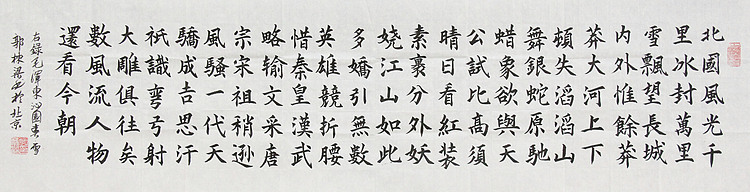 北國風光千
里冰封萬里
雪飄望長城
內外惟餘莽
莽大河上下
頓失滔滔山
舞銀蛇原馳
蜡象欲與天
公試比高須
晴日看紅裝
素裹分外妖
嬈江山如此
多嬌引無數
英雄競折腰
惜秦皇漢武
略輸文采唐
宗宋祖稍遜
風騷一代天
驕成吉思汗
祇識彎弓射
大雕俱往矣
數風流人物
還看今朝
右錄毛澤東沁園春雪
郭棟梁書於北京